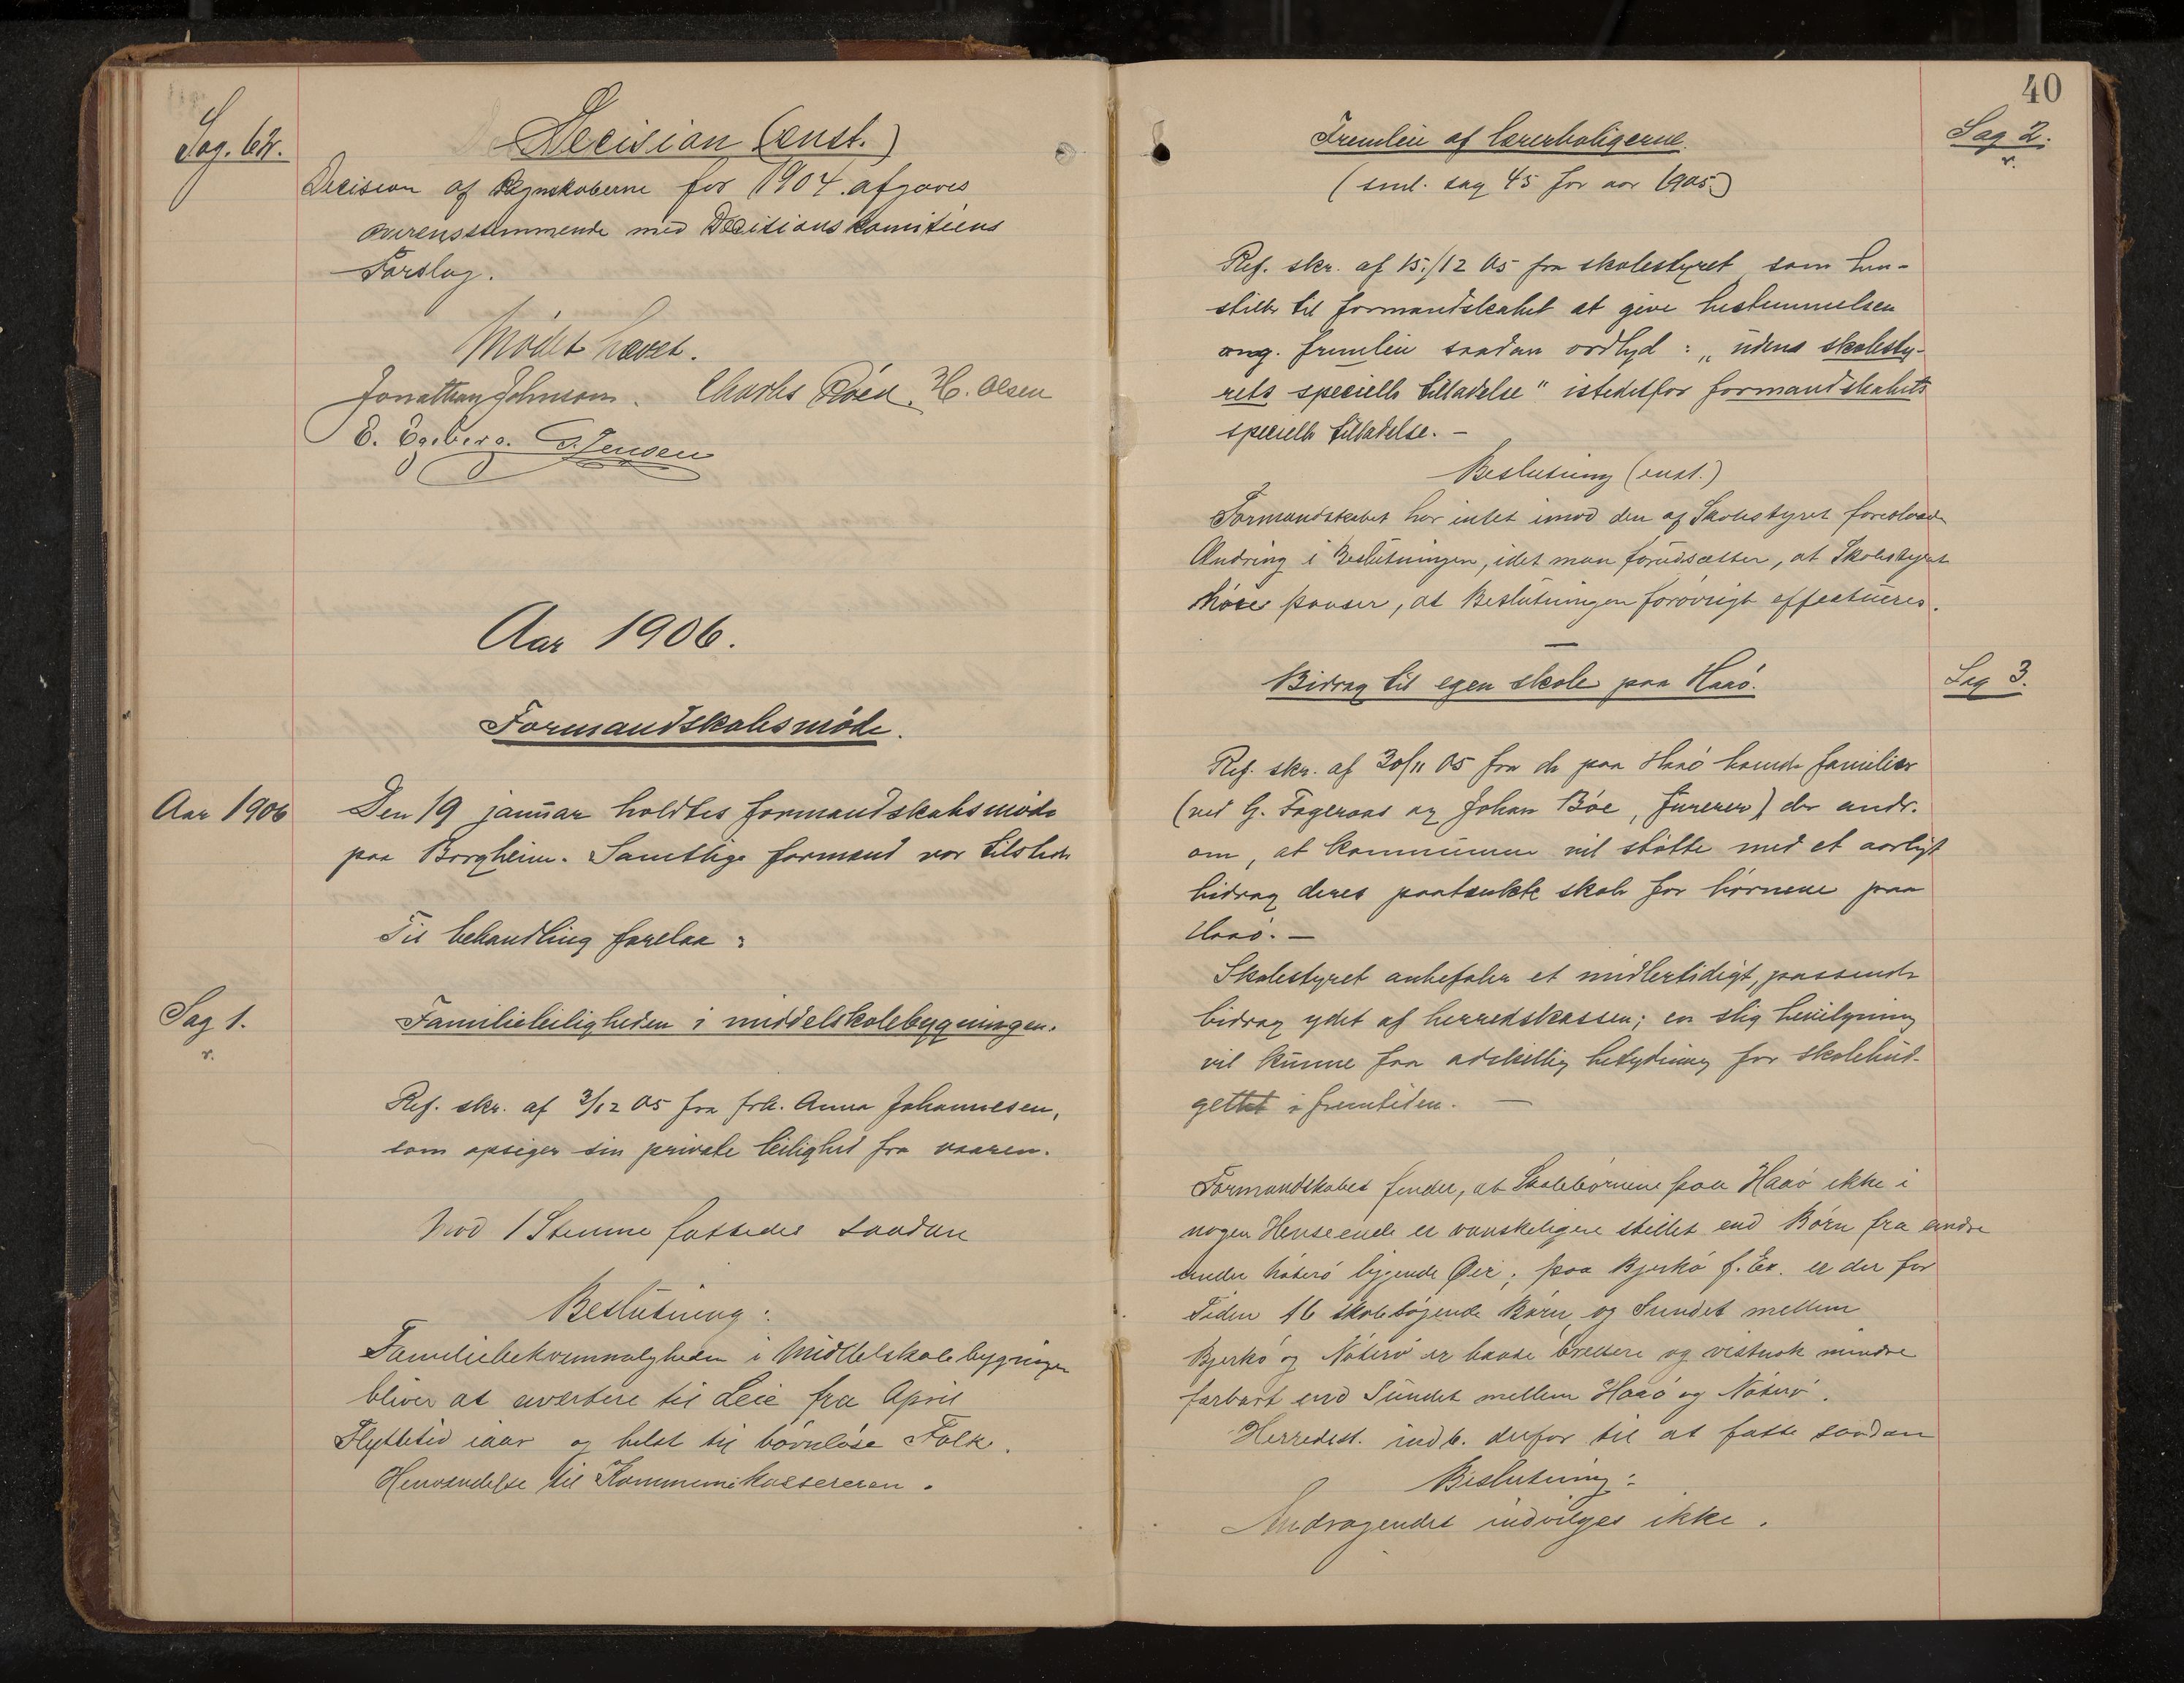 Sag. 62.
Decision (enst.)
Decision af Regnskaberne for 1904. afgaves
overensstemmende med Decisionskomiteens
Forslag.
Mødet hævet.
Jonathan Johnson. Charles H. Olsen
E. Egeberg. G. Jensen
Aar 1906.
Formandskabsmøde.
Aar 1906
Den 19 januar holdtes formandskabsmøde
paa Borgheim. Samtlige formænd var tilstede
Til behandling forelaa:
Sag 1.
Familieleiligheden i middelskolebygningen.
v.
Ref. skr. af 3/12 05 fra frk. Anna Johannesen,
som opsiger sin private leilighed fra vaaren.
Mod 1 Stemme fattedes saadan
Beslutning:
Familiebekvemmeligheden i Middelskolebygningen
bliver at avertere til Leie fra April
Flyttetid iaar og helst til børnløse Folk.
Henvendelse til Kommunekassereren.
40
Fremleie af lærerboligerne.
Sag 2.
v.
(sml. sag 45 for aar 1905.)
Ref. skr. af 15./12 05 fra skolestyret som hen-
stiller til formandskabet at give bestemmelsen
ang. fremleie saadan ordlyd: „uden skolesty-
rets specielle tilladelse" istedetfor formandskabets
specielle tilladelse. —
Beslutning (enst.)
Formandskabet har intet imod den af Skolestyret foreslaaede
Ændring i Beslutningen, idet man forudsætter, at Skolestyret
paaser, at Beslutningen forøvrigt effectueres.
Bidrag til egen skole paa Haaø.
Sag 3.
Ref. skr. af 30/11 05 fra de paa Haaø boende familier
(ved G. Fageraas og Johan Bøe, ) der andr.
om, at kommunen vil støtte med et aarligt
bidrag deres paatænkte skole for børnene paa
Haaø. —
Skolestyret anbefaler et midlertidigt, passende
bidrag ydet af herredskassen; en slig bevilgning
vil kunne faa adskillig betydning for skolebud-
gettet i fremtiden. —
Formandskabet finder, at Skolebørnene paa Haaø ikke i
nogen Henseende er vanskeligere stillet end Børn fra andre
under Nøterø liggende Øer; paa Bjerkø f. Ex. er der for
Tiden 16 skolesøgende Børn, og Sundet mellem
Bjerkø og Nøterø er baade bredere og vistnok mindre
farbart end Sundet mellem Haaø og Nøterø.
Herredsst. indb. derfor til at fatte saadan
Beslutning:
Andragendet indvilges ikke.